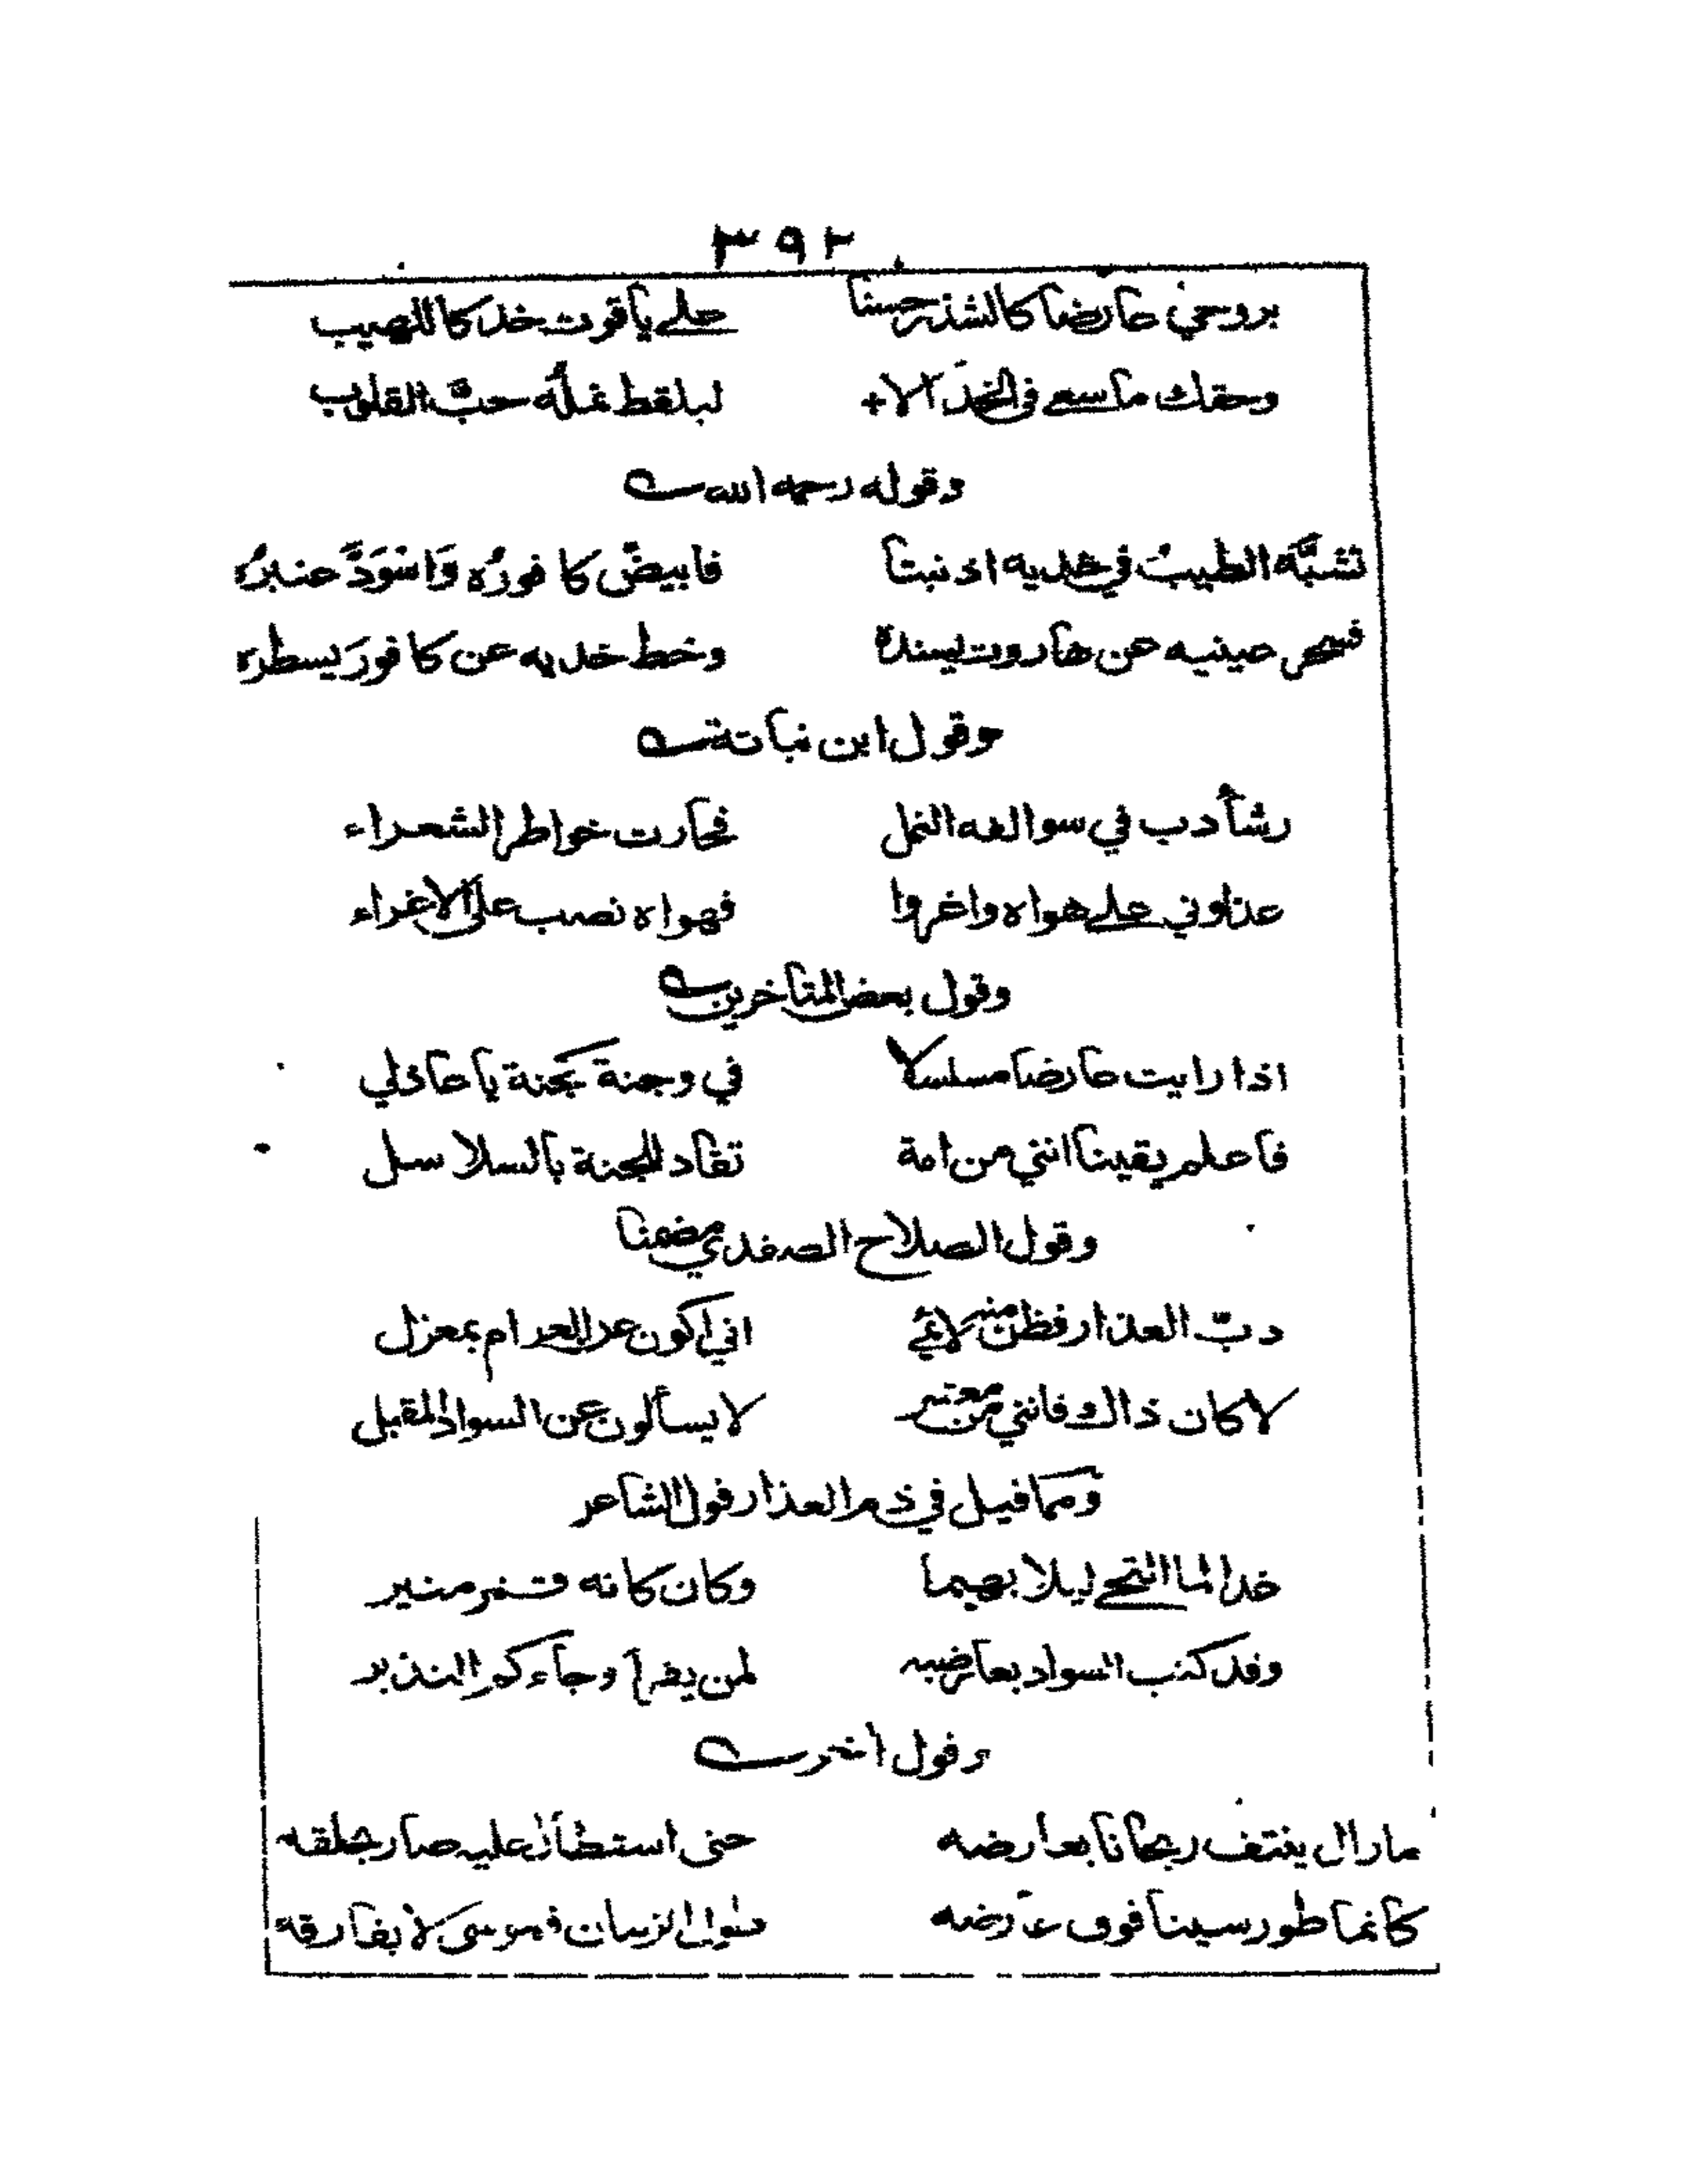 ٣٩٢
بروحي عارضا كالشذر حسنا على ياقوت خد كاللهيب
وحقك ما سعى في الخد الا ليلقط نمله حب القلوب
وقوله رحمه الله
تشبّه الطيب في خديه اذ نبتا فابيضّ كافوره وَاسْوَدَّ عنبرُه
عينيه عن هاروت يسنده وخط خديه عن كافور يسطره
وقول ابن نباتة
رشأ دب في سوالفه النمل فحارت خواطر الشعراء
عذلوني على هواه واغروا فهواه نصب على الاغراء
وقول بعض المتأخرين
اذا رايت عارضا مسلسلا في وجنة كجنة يا عاذلي
فاعلم يقينا انني من امة تقاد للجنة بالسلاسل
وقول الصلاح الصفدي مضمنا
دبّ العذار فظن منه لائمي اني اكون عن الغرام بمعزل
لا كان ذاك فانني من معشر لا يسألون عن السواد المقبل
ومما قيل في ذم العذار قول الشاعر
غدا لما التحى ليلا بهيما وكان كانه قمر منير
وقد كتب السواد بعارضيه لمن يقرأ وجاءكم النذير
وقول آخر
مازال ينتف ريحانا بعارضه حتى استطال عليه صار يحلقه
كانما طور سينا فوق عارضه طول الزمان فموسى لا يفارقه